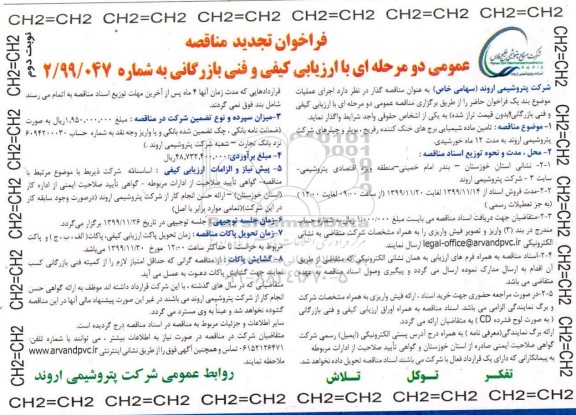 CH2=CH2 CH2=CH2 CH2=CH2 CH2=CH2 CH2=CH2 CH2=CH2
نوبت دوم
فراخوان تجدید مناقصه
عمومی دو مرحله ای با ارزیابی کیفی و فنی بازرگانی به شماره ۲/۹۹/۰۴۷
شرکت پتروشیمی اروند (سهامی خاص) به عنوان مناقصه گذار در نظر دارد اجرای عملیات
موضوع بند یک فراخوان حاضر را از طریق برگزاری مناقصه عمومی دو مرحله ای با ارزیابی کیفی
و فنی بازرگانی(بدون قیمت تراز شده) به یکی از اشخاص حقوقی واجد شرایط واگذار نماید.
۱-موضوع مناقصه : تامین ماده شیمیایی برج های خنک کننده رفریج ، یوپر و چیلرهای شرکت
پتروشیمی اروند به مدت ۱۲ ماه خورشیدی.
۲- محل ، مدت و نحوه توزیع اسناد مناقصه :
۲-۱- نشانی استان خوزستان – بندر امام خمینی–منطقه ویژه اقتصادی پتروشیمی-
سایت ۳ - شرکت پتروشیمی اروند
۲-۲-مدت فروش اسناد از ۱۳۹۹/۱۱/۱۴ لغایت ۱۳۹۹/۱۱/۲۰ (از ساعت ۹:۰۰ لغایت ۱۲:۰۰)
(به جز تعطیلات رسمی )
۲-۳-متقاضیان جهت دریافت اسناد مناقصه می بایست مبلغ ریال به شماره حساب
مندرج در بند (۳) واریز و تصویر فیش واریزی را به همراه مشخصات شرکت متقاضی به نشانی
الکترونیکی legal-office@arvandpvc.ir ارسال نمایند.
۲-۴-اسناد مناقصه به همراه فرم های ارزیابی به همان نشانی الکترونیکی که متقاضی از طریق
آن اقدام به ارسال مدارک نموده ارسال می گردد و پیگیری وصول اسناد مناقصه به عهده
متقاضی می باشد.
۲-۵-در صورت مراجعه حضوری جهت خرید اسناد ، ارائه فیش واریزی به همراه مشخصات شرکت
و برگ نمایندگی الزامی می باشد. اسناد مناقصه به همراه اوراق ارزیابی کیفی و فنی بازرگانی
( به صورت لوح فشرده CD ) به متقاضیان ارائه می گردد.
ارائه برگ نمایندگی(معرفی نامه ) به همراه درج آدرس پستی الکترونیکی (ایمیل) رسمی شرکت
گواهی صلاحیت ایمنی صادره از استان خوزستان و گواهی تأیید صلاحیت از ادارات مربوطه
به پیمانکارانی که دارای یک قرارداد فعال با شرکت می باشند اسناد مناقصه تحویل داده نخواهد شد
قراردادهایی که مدت زمان آنها ۴ ماه پس از آخرین مهلت توزیع اسناد مناقصه به اتمام می رسند
شامل بند فوق نمی گردند.
۳-میزان سپرده و نوع تضمین شرکت در مناقصه : مبلغ ۱.۹۵۰.۰۰۰.۰۰۰ ریال به صورت
(ضمانت نامه بانکی ، چک تضمین شده بانکی و یا واریز وجه نقد به شماره حساب ۶۰۹۴۲۰۰۳۰
نزد بانک تجارت – شعبه شرکت پتروشیمی اروند )
۴- مبلغ برآوردی: ۴۸،۷۳۲،۴۰۰،۰۰۰ ریال.
۵- پیش نیاز و الزامات ارزیابی کیفی : اساسنامه شرکت ذیربط با موضوع مرتبط با
مناقصه– گواهی تأیید صلاحیت از ادارات مربوطه - گواهی تأیید صلاحیت ایمنی از اداره کار
(استان خوزستان) – ارائه حسن انجام کار از شرکت پتروشیمی اروند (درصورت وجود سابقه کار
در این شرکت)(تمامی موارد برابر با اصل)
۶-زمان جلسه توجیهی : جلسه توجیهی در تاریخ ۱۳۹۹/۱۱/۲۶ برگزار می‌گردد.
۷-زمان تحویل پاکات مناقصه: زمان تحویل پاکت ارزیابی کیفی، پاکات( الف ، ب ، ج ) و پاکت
مربوط به خواست: تا حداکثر ساعت ۱۲:۰۰ مورخ ۱۳۹۹/۱۱/۳۰ می باشد.
۸-گشایش پاکات : از مناقصه گرانی که حداقل امتیاز لازم را از کمیته فنی بازرگانی کسب
نمایند جهت گشایش پاکات دعوت به عمل می آید.
متقاضیانی که در سال های گذشته ، با این شرکت قرارداد داشته اند موظف به ارائه گواهی حسن
انجام کار از شرکت پتروشیمی اروند می باشند در غیر این صورت پیشنهاد مالی آنها در این مناقصه
گشوده نخواهد شد و عیناً به وی مسترد می گردد.
سایر اطلاعات و جزئیات مربوط به مناقصه در اسناد مناقصه درج گردیده است.
متقاضیان شرکت در مناقصه در صورت نیاز به اطلاعات بیشتر ، می توانند با شماره تلفن:
۰۶۱۵۲۱۲۶۴۷۱ تماس و همچنین آگهی فوق را از طریق نشانی اینترنتی www.arvandpvc.ir
ملاحظه نمایند.
تفکر توکل تلاش
روابط عمومی شرکت پتروشیمی اروند
CH2=CH2 CH2=CH2 CH2=CH2 CH2=CH2 CH2=CH2 CH2=CH2